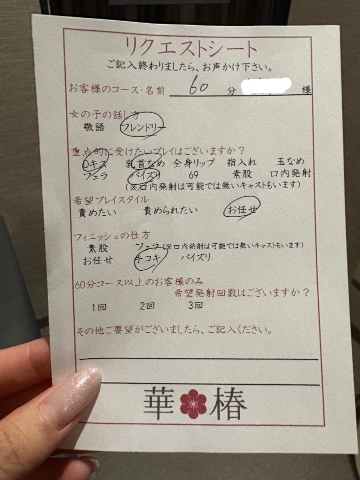 リクエストシート
ご記入終わりましたら、お声かけ下さい。
お客様のコース・名前 60 分 様
女の子の話し方
敬語 フレンドリー
重点的に受けたいプレイはございますか?
Dキス 乳首なめ 全身リップ 指入れ 玉なめ
フェラ パイズリ 69 素股 口内発射
(※口内発射は可能では無いキャストもいます)
希望プレイスタイル
責めたい 責められたい お任せ
フィニッシュの仕方
素股 フェラ(※口内発射は可能では無いキャストもいます)
お任せ 手コキ パイズリ
60分コース以上のお客様のみ
希望発射回数はございますか?
1回 2回 3回
その他ご要望がございましたら、ご記入ください。
華 椿